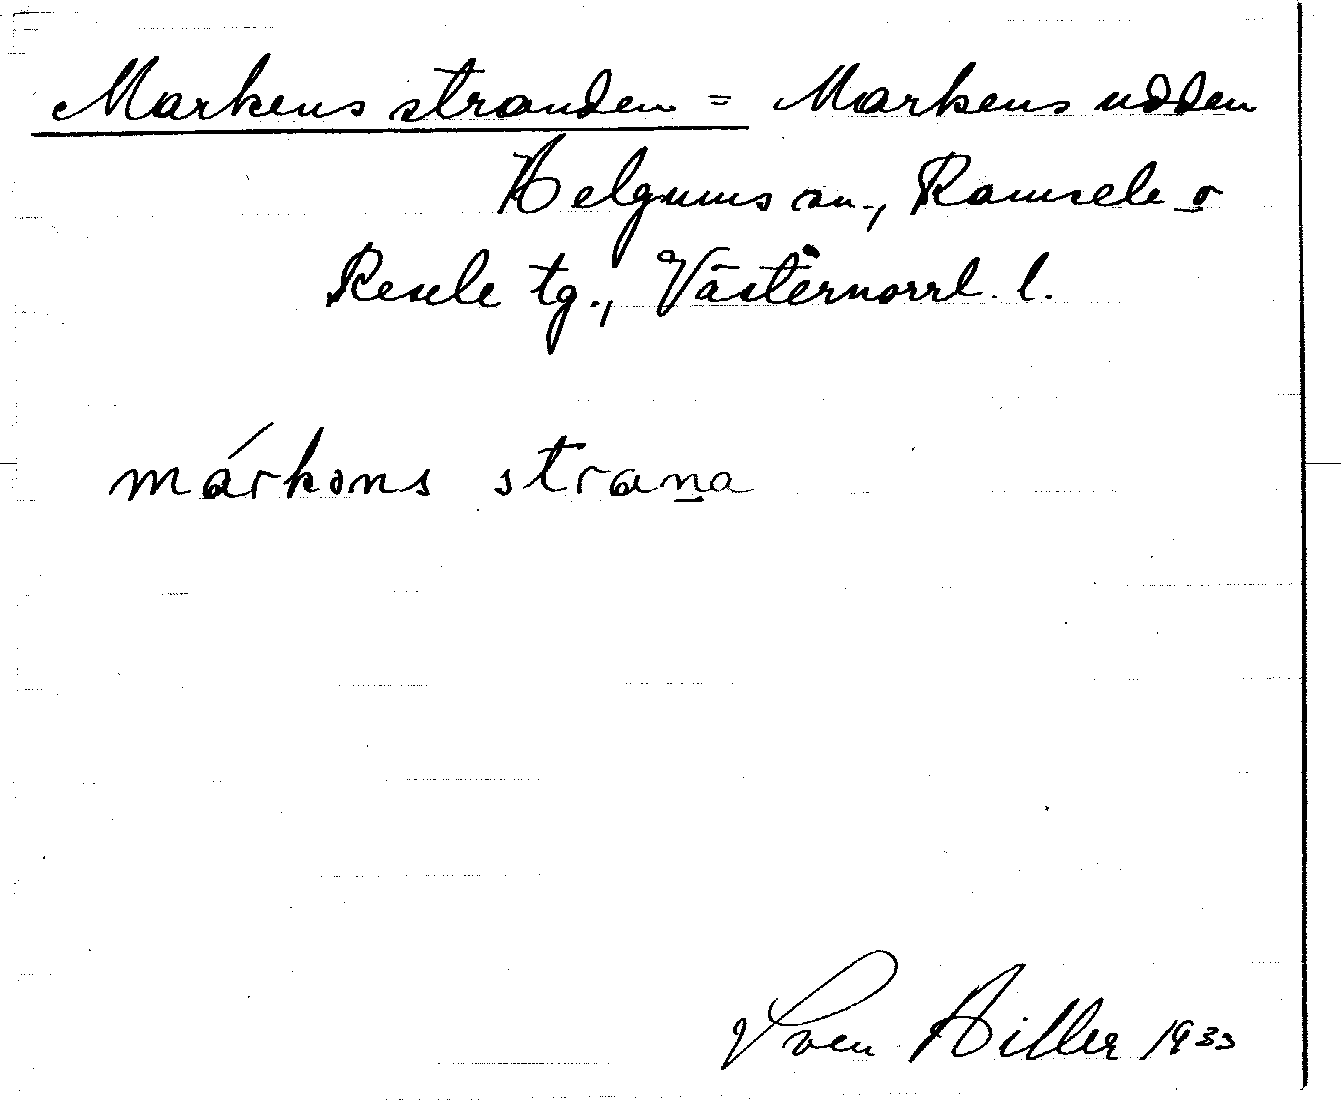 Markens stranden = Markens udden
Helgums sn., Ramsele o
Resele tg., Västernorrl. l.
márkəns strana
Sven Hiller 1933